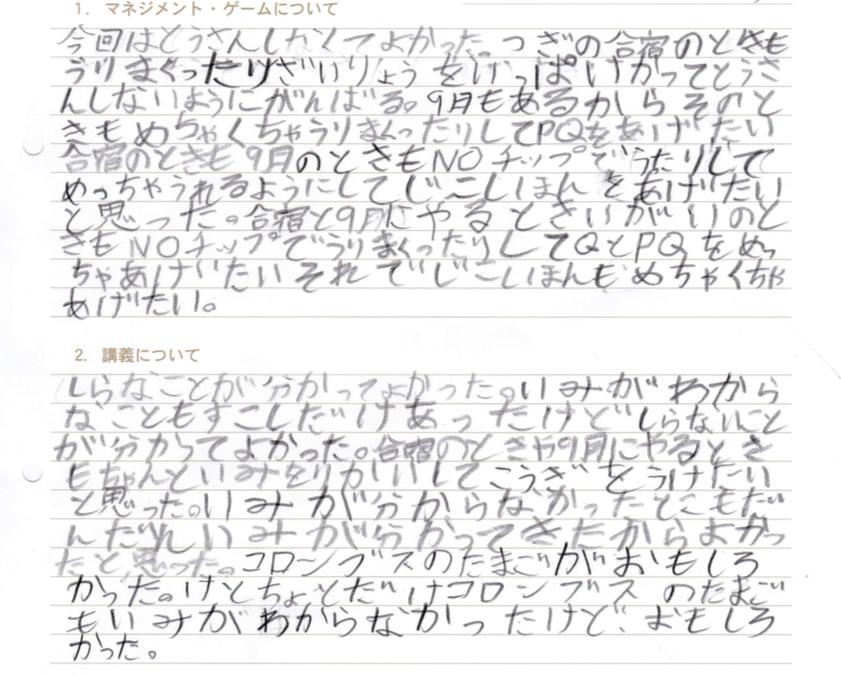 1. マネジメント・ゲームについて
今回はとうさんしなくてよかった。つぎの合宿のときも
うりまくったりざいりょうをけっぱいかってとうさ
んしないようにがんばる。9月もあるからそのと
きもめちゃくちゃうりまくったりしてPQをあげたい
合宿のときも9月のときもNOチップでうたりして
めっちゃうれるようにしてじこしほんをあげたい
と思った。合宿と9月にやるとさいがいのと
きもNOチップでうりまくったりしてQとPQをめっ
ちゃあげたいそれでじこしほんもめちゃくちゃ
あげたい。
2. 講義について
しらなことが分かってよかった。いみがわから
なこともすこしだけあったけどしらないこと
が分かってよかった。合宿のときや9月にやるとき
もちゃんといみをりかいしてこうぎをうけたい
と思った。いみが分からなかったとこもだい
んだんいみが分かってきたからよかっ
たと思った。コロンブスのたまごがおもしろ
かった。けどちょとだけコロンブスのたまご
もいみがわからなかったけど、おもしろ
かった。